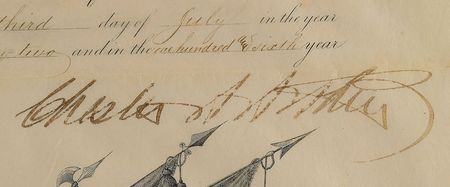 third day of July in the year
two and in the one hundred & sixth year
Chester A Arthur